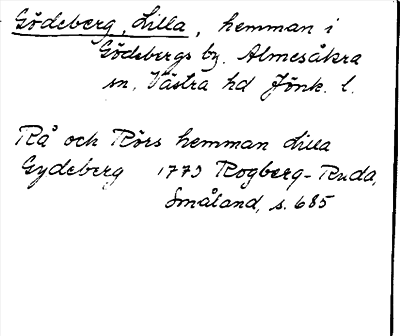 Gödeberg, Lilla, hemman i
Gödebergs by. Almesåkra
sn, Västra hd Jönk. l.
Rå och Rörs hemman Lilla
Gydeberg 1773 Rogberg-Ruda,
Småland, s. 685